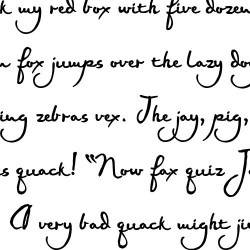 k my red box with five dozen
n fox jumps over the lazy do
ing zebras vex. The jay, pig,
s quack! "Now fax quiz J
A very bad quack might ju